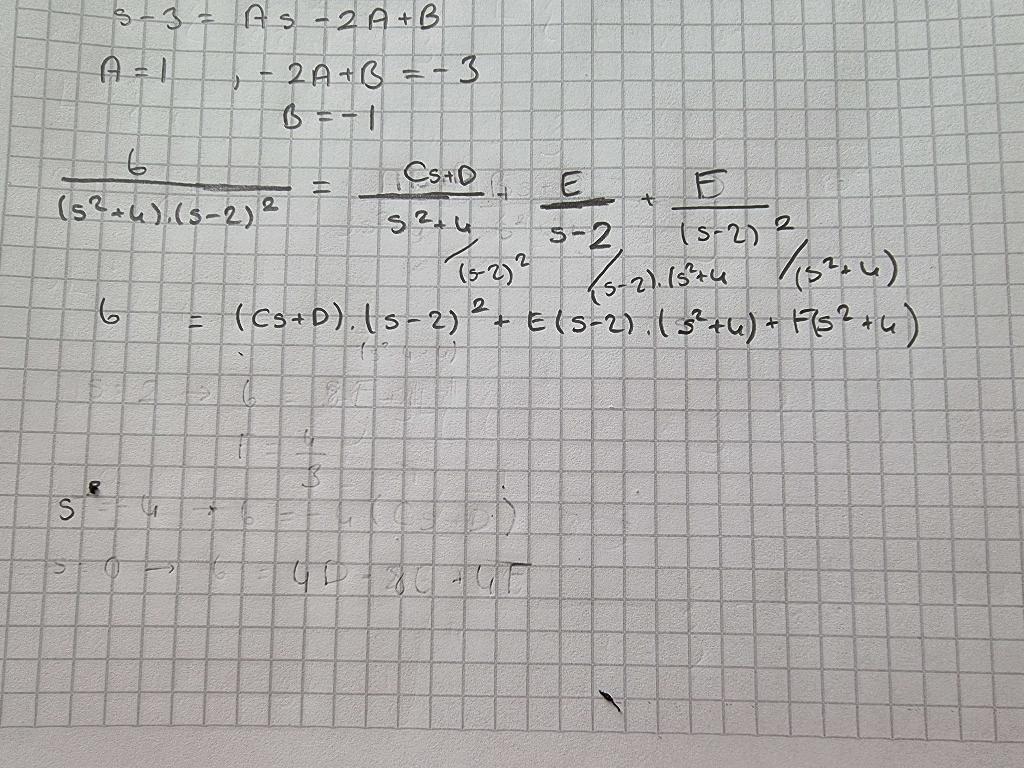 s-3 = As -2A+B
A=1 , -2A+B = -3
B = -1
6/((s²+4).(s-2)²) = (Cs+D)/(s²+4) + E/(s-2) + F/(s-2)²
/(s-2)² /(s-2).(s²+4 /(s²+4)
6 = (Cs+D).(s-2)² + E(s-2).(s²+4) + F(s²+4)
6 =
s = -4 → 6 = -4(Cs+D)
s=0 → 6 = 4D - 8C + 4F